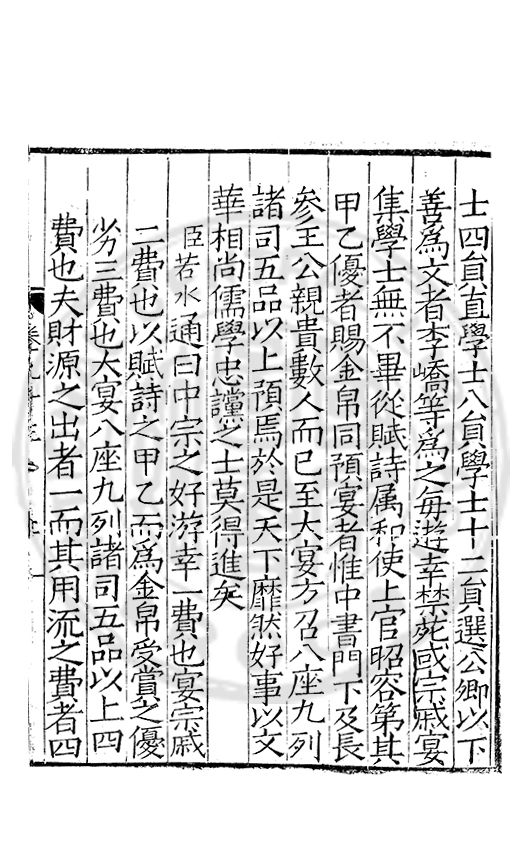 士四員直學士八員學士十二員選公卿以下
善為文者李嶠等為之每遊幸禁苑或宗戚宴
集學士無不畢從賦詩属和使上官昭容第其
甲乙優者賜金帛同預宴者惟中書門下及長
參王公親貴數人而已至大宴方召八座九列
諸司五品以上預焉於是天下靡然好事以文
華相尚儒學忠讜之士莫得進矣
臣若水通曰中宗之好游幸一費也宴宗戚
二費也以賦詩之甲乙而為金帛受賞之優
劣三費也大宴八座九列諸司五品以上四
費也夫財源之出者一而其用流之費者四